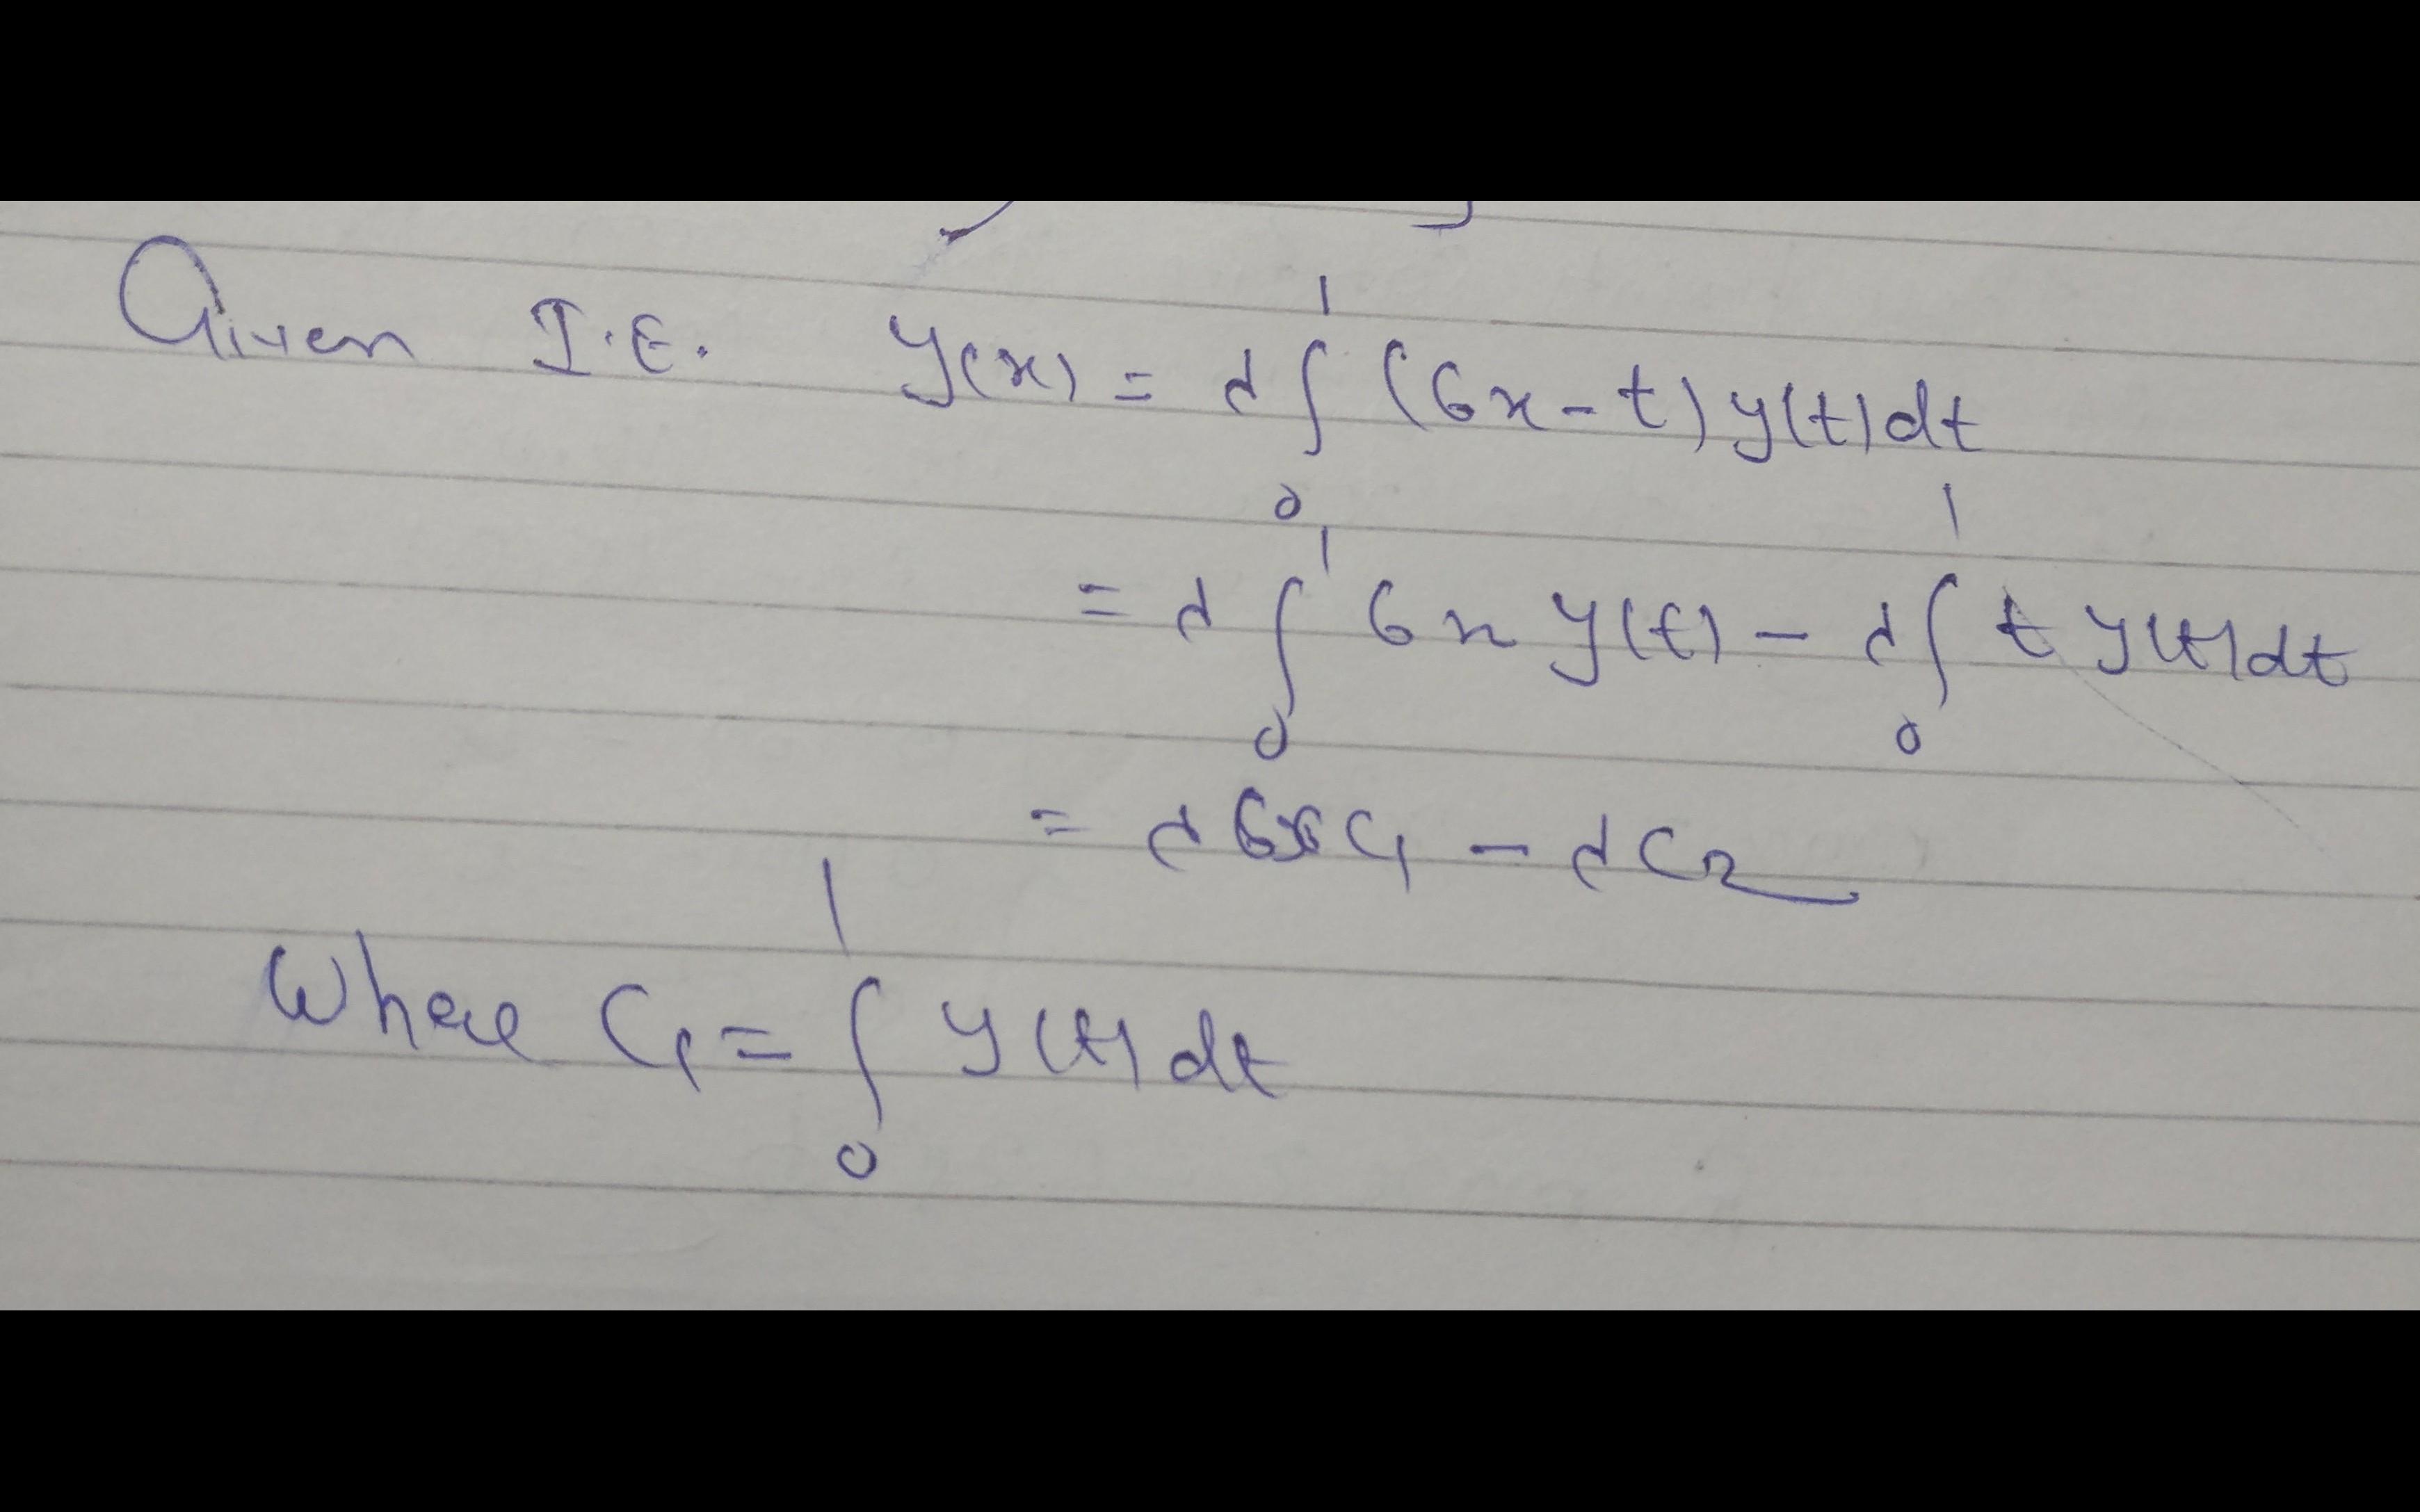 Given I.E. y(x) = λ∫₀¹ (6x-t) y(t)dt
= λ∫₀¹ 6x y(t) - λ∫₀¹ t y(t)dt
= λ6xC₁ - λC₂
Where C₁ = ∫₀¹ y(t)dt